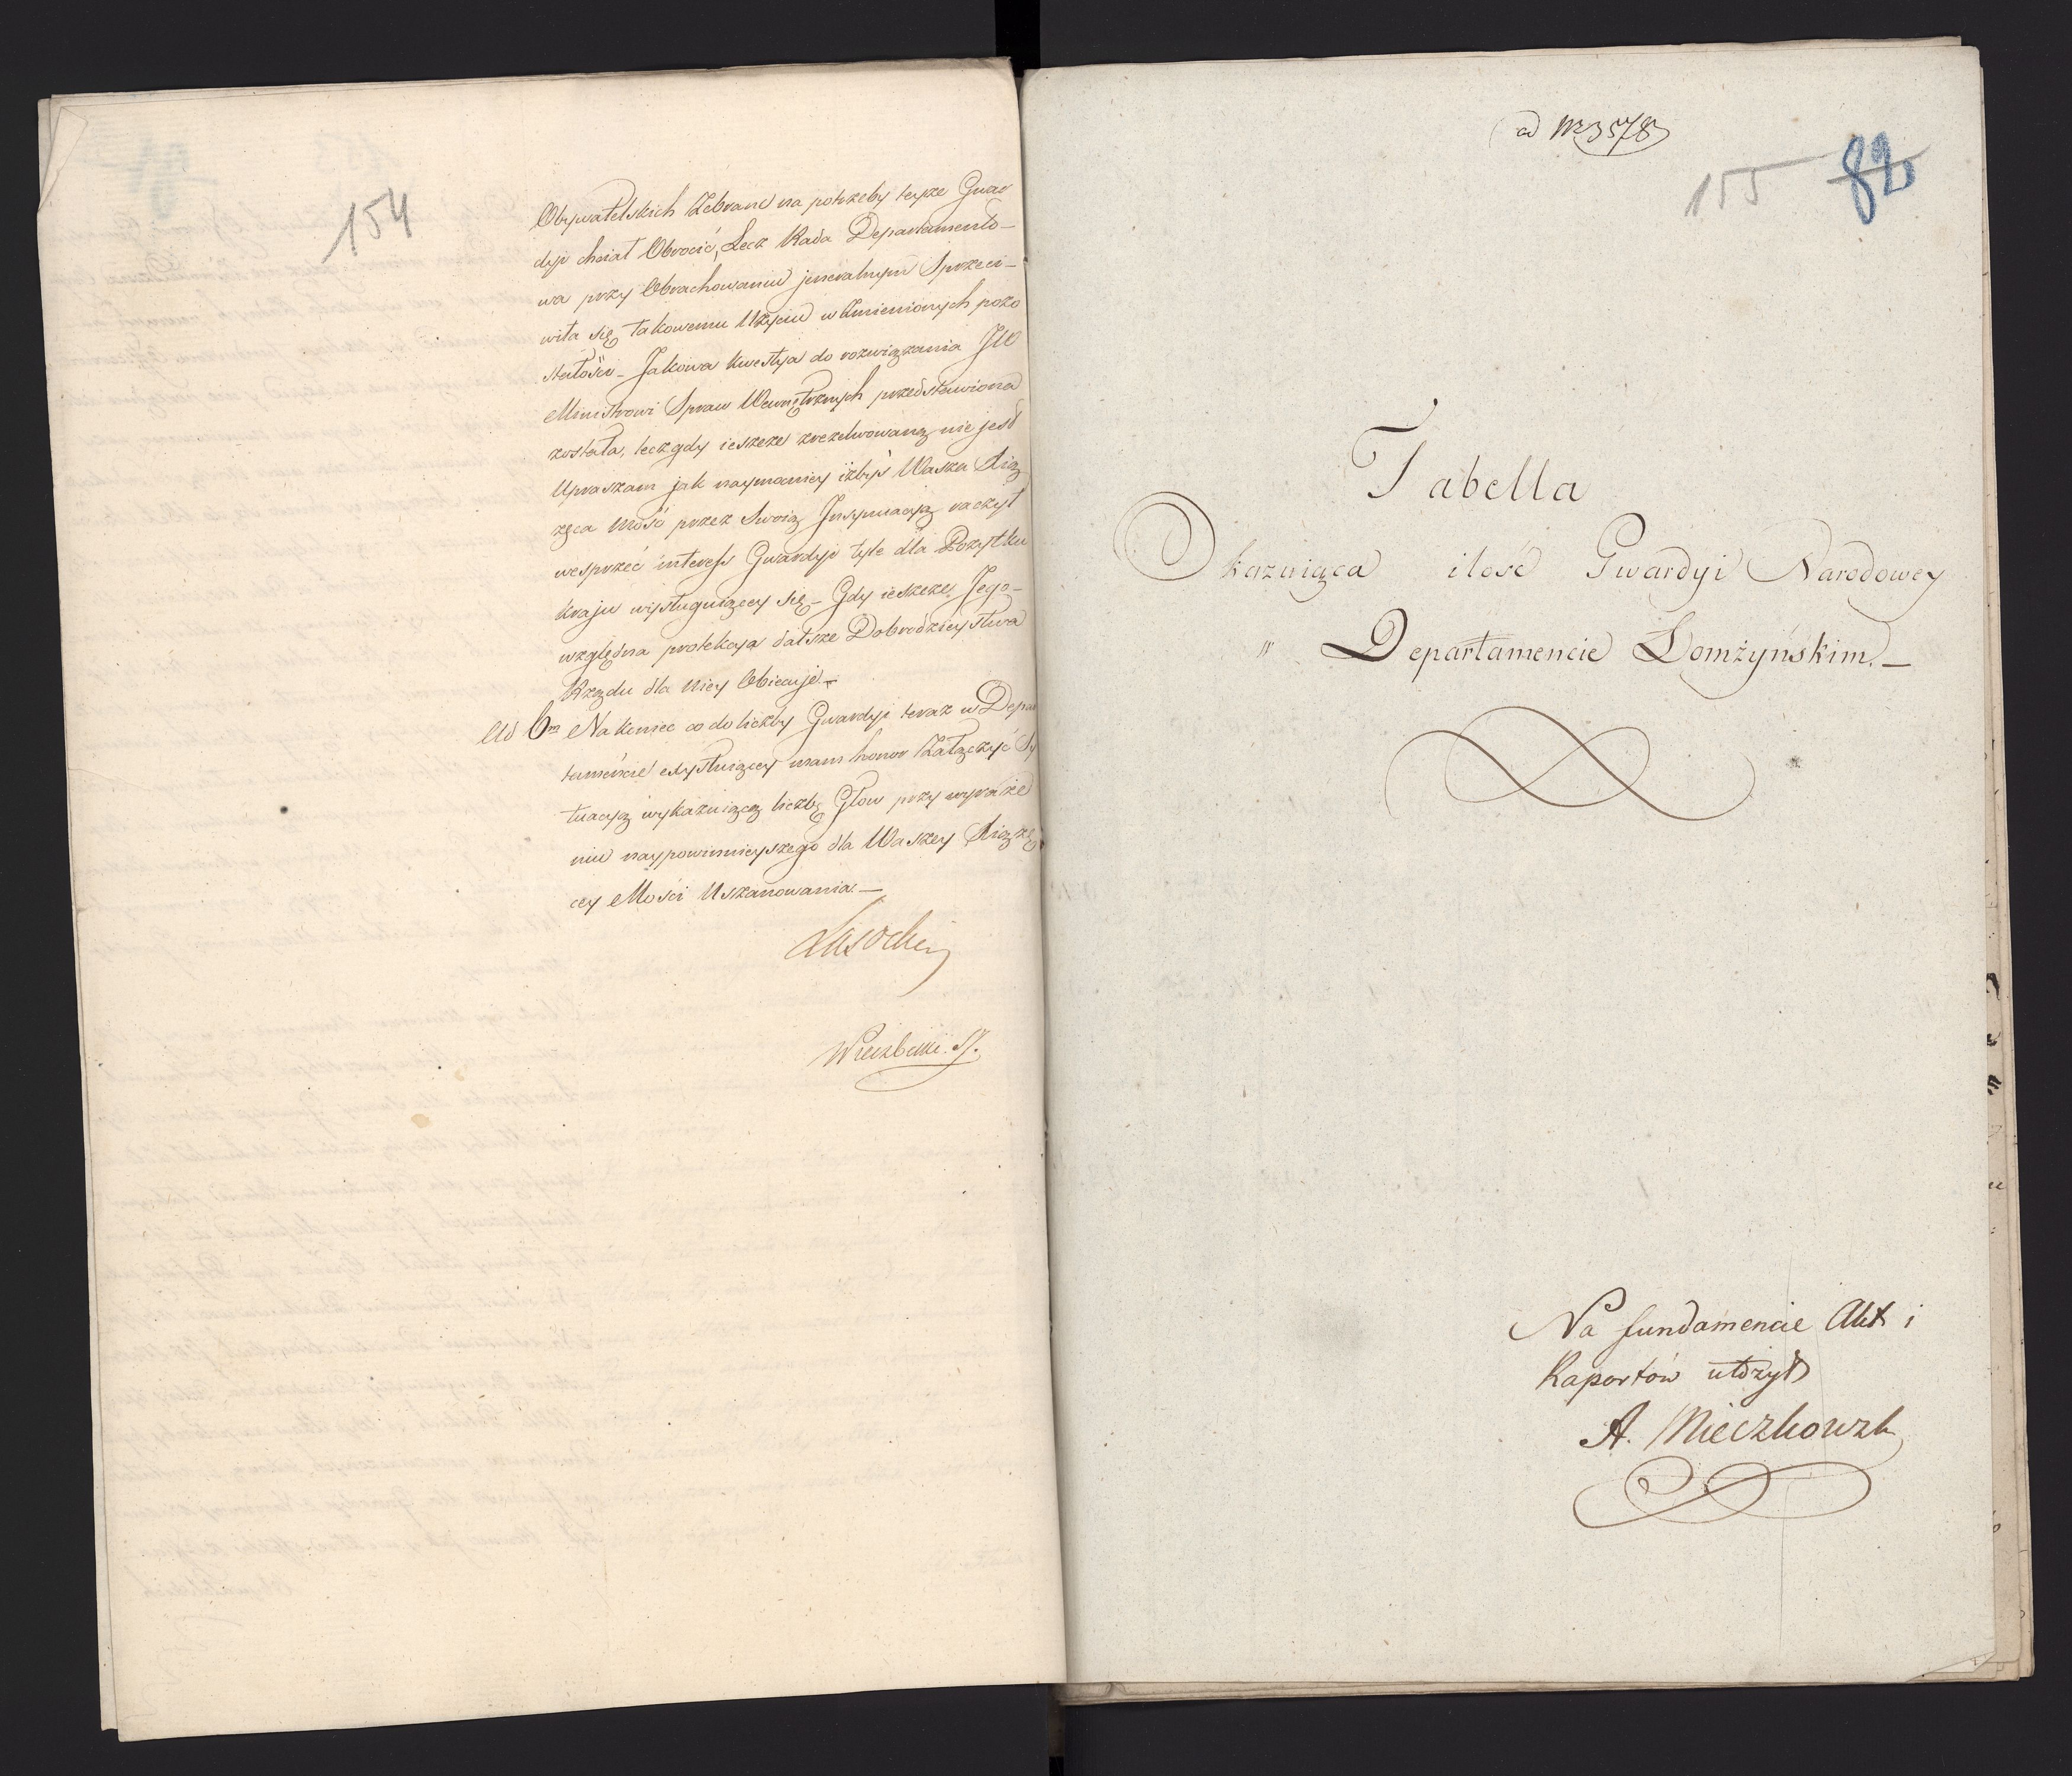 154
Obywatelskich Zebrane na potrzeby teyże Gwar
dyi chciał Obrocić, Lecz Rada Departamento-
wa przy Obrachowaniu jeneralnym Sprzeci-
wiła się takowemu Użyciu wzmienionych pozo
stałości_ Jakowa kwestya do rozwiązania JW
Ministrowi Spraw Wewnętrznych przedstawiona
została, lecz gdy ieszcze zrezolwowaną nie jest
Upraszam jak naymocniey iżbyś Wasza Xią
żęca Mość przez Swoią Insynuacyą raczył
wesprzeć interess Gwardyi tyle dla Pożytku
Kraju wysługuiącey się_ Gdy ieszcze Jego_
względna protekcya dalsze Dobrodzieystwa
Rządu dla Niey Obiecuje._
Ad 6m Nakoniec co do liczby Gwardyi teraz w Depar
tamencie exystuiącey mam honor Załączyć Sy
tuacyą wykazuiącą liczbę Głow przy wyraże
niu naypowinnieyszego dla Waszey Xiążę
cey Mości Uszanowania._
Lasocki
Wierzbicki. SJ.
ad Nr 3578
155 82
Tabella
Okazuiąca ilość Gwardyi Narodowey
w Departamencie Łomżyńskim._
Na fundamencie Akt i
Raportów ułożył
A. Mieczkowsk